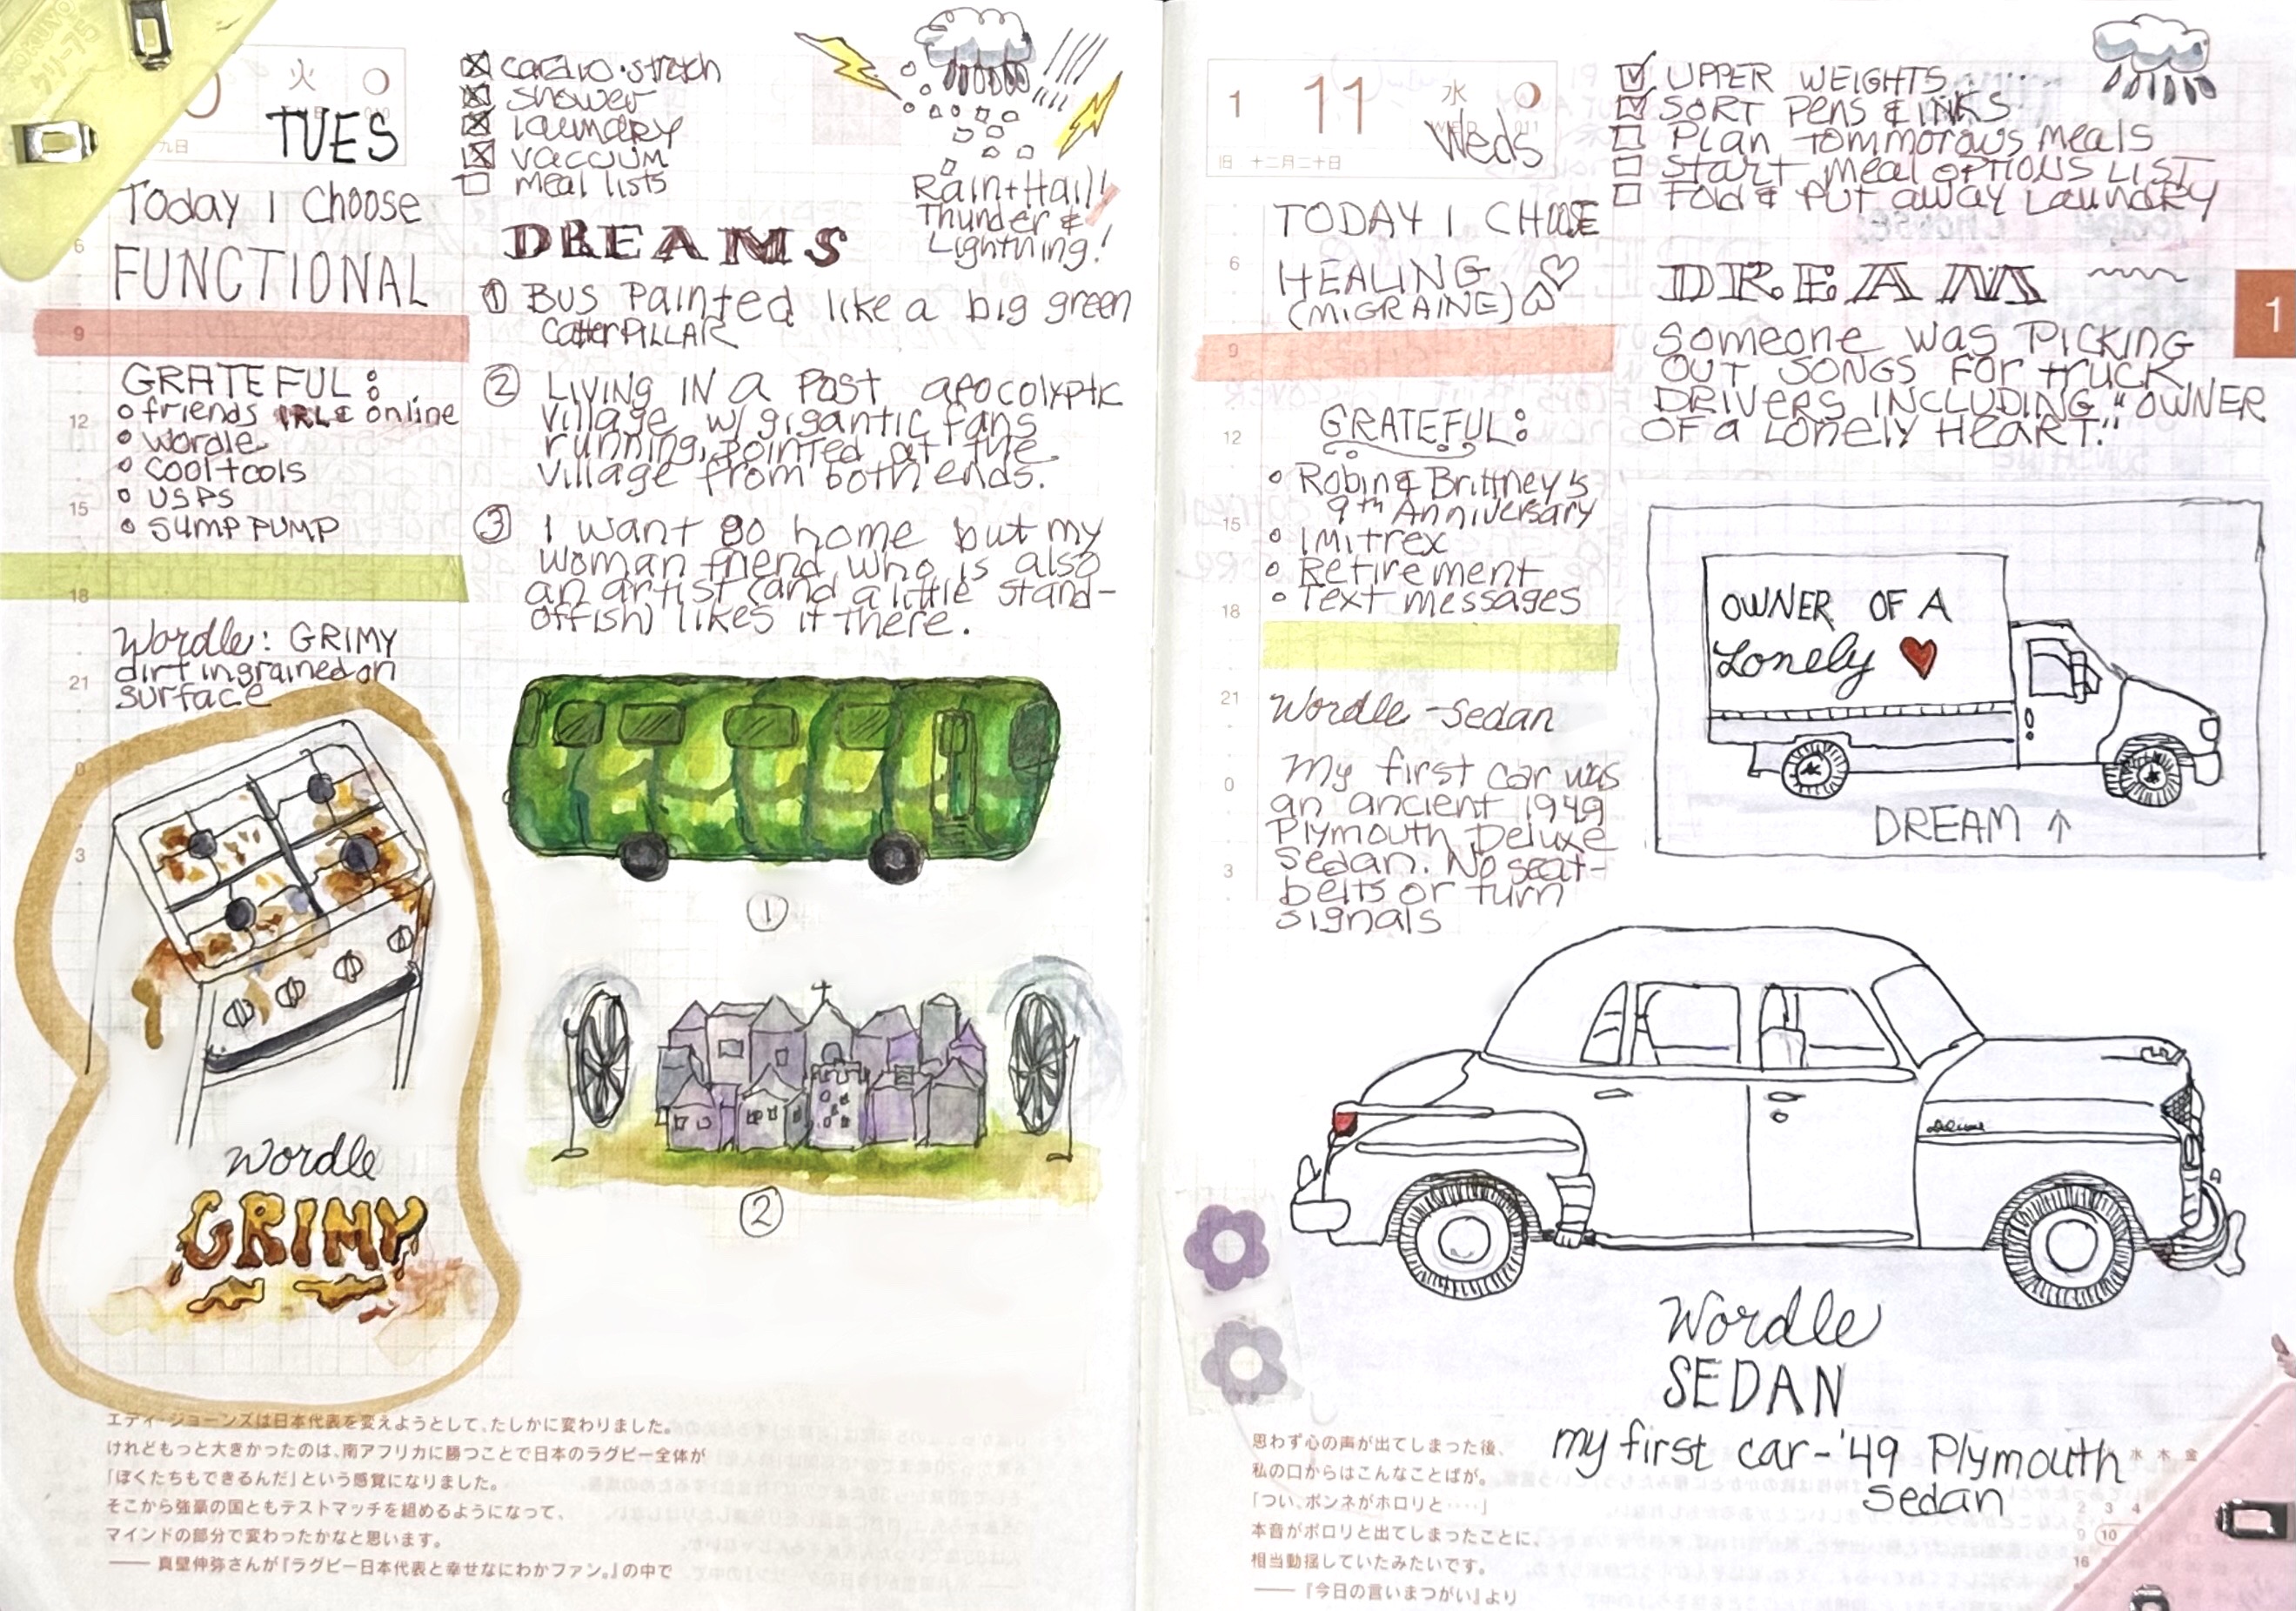 KOKUYO
クリ-75
0
火
九日
TUES
Today I Choose
FUNCTIONAL
6
9
GRATEFUL:
friends IRL & online
wordle
cool tools
USPS
SUMP PUMP
12
15
18
Wordle: GRIMY
dirt ingrained on
surface
21
0
3
Wordle
GRIMY
cardio·stretch
shower
laundry
vaccuum
meal lists
Rain+Hail!
Thunder &
Lightning!
DREAMS
① BUS Painted like a big green
CatterPILLAR
② LIVING IN a Post apocolyptic
village w/ gigantic fans
running, pointed at the
village from both ends.
③ I want go home but my
woman friend who is also
an artist (and a little stand-
offish) likes it there.
①
②
エディ・ジョーンズは日本代表を変えようとして、たしかに変わりました。
けれどもっと大きかったのは、南アフリカに勝つことで日本のラグビー全体が
「ぼくたちもできるんだ」という感覚になりました。
そこから強豪の国ともテストマッチを組めるようになって、
マインドの部分で変わったかなと思います。
―― 真壁伸弥さんが『ラグビー日本代表と幸せなにわかファン。』の中で
1
11
水
Weds
旧 十二月二十日
TODAY I CHOOSE
HEALING
(MIGRAINE)
6
9
GRATEFUL:
Robin & Brittney's
9th Anniversary
Imitrex
Retirement
Text messages
12
15
18
Wordle - Sedan
21
My first car was
an ancient 1949
Plymouth Deluxe
Sedan. No seat-
belts or turn
signals
0
3
UPPER WEIGHTS
SORT Pens & INKS
Plan tommorows meals
Start meal OPTIONS LIST
Fold & Put away Laundry
DREAM
1
Someone was PICKING
OUT SONGS FOR truck
DRIVERS INCLUDING "OWNER
OF a Lonely HEART."
OWNER OF A
Lonely ♥
DREAM ↑
Deluxe
Wordle
SEDAN
my first car-'49 Plymouth
sedan
水 木 金
2 3 4
9 10
16
思わず心の声が出てしまった後、
私の口からはこんなことばが。
「つい、ポンネがホロリと‥‥」
本音がポロリと出てしまったことに、
相当動揺していたみたいです。
―― 『今日の言いまつがい』より